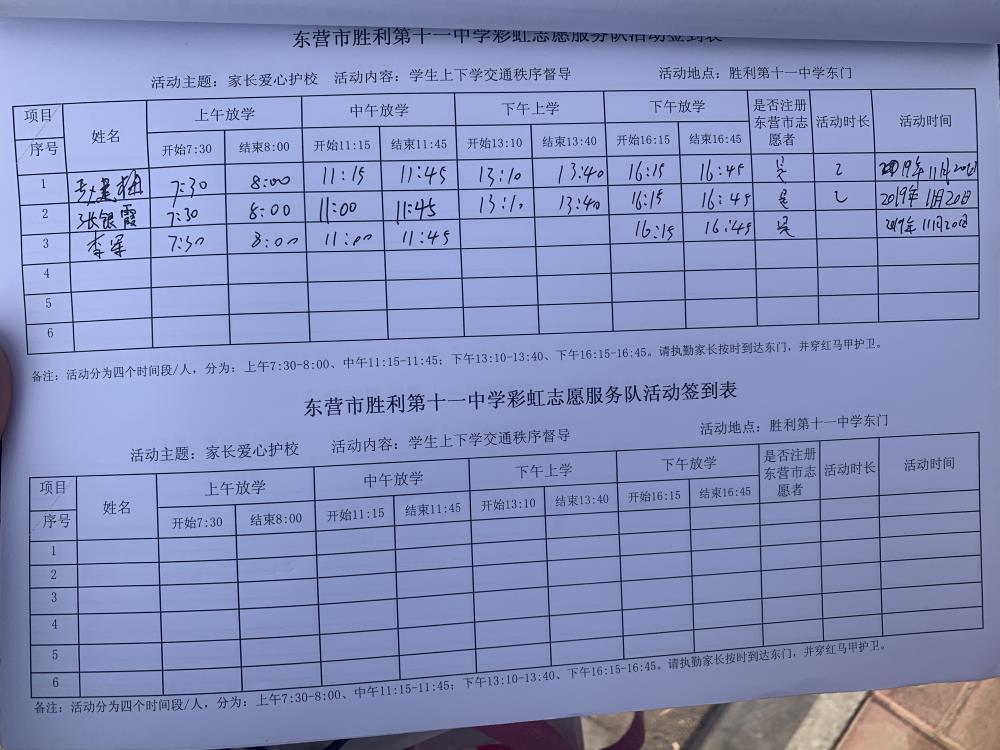 东营市胜利第十一中学彩虹志愿服务队活动签到表
活动主题：家长爱心护校 活动内容：学生上下学交通秩序督导 活动地点：胜利第十一中学东门
项目 序号 姓名 上午放学 中午放学 下午上学 下午放学 是否注册东营市志愿者 活动时长 活动时间
开始7:30 结束8:00 开始11:15 结束11:45 开始13:10 结束13:40 开始16:15 结束16:45
1 7:30 8:00 11:15 11:45 13:10 13:40 16:15 16:45 是 2 2019年11月20日
2 张银霞 7:30 8:00 11:00 11:45 13:10 13:40 16:15 16:45 是 2 2019年11月20日
3 李军 7:30 8:00 11:00 11:45 16:15 16:45 是 2019年11月20日
4
5
6
备注：活动分为四个时间段/人，分为：上午7:30-8:00、中午11:15-11:45；下午13:10-13:40、下午16:15-16:45。请执勤家长按时到达东门，并穿红马甲护卫。
东营市胜利第十一中学彩虹志愿服务队活动签到表
活动主题：家长爱心护校 活动内容：学生上下学交通秩序督导 活动地点：胜利第十一中学东门
项目 序号 姓名 上午放学 中午放学 下午上学 下午放学 是否注册东营市志愿者 活动时长 活动时间
开始7:30 结束8:00 开始11:15 结束11:45 开始13:10 结束13:40 开始16:15 结束16:45
1
2
3
4
5
6
备注：活动分为四个时间段/人，分为：上午7:30-8:00、中午11:15-11:45；下午13:10-13:40、下午16:15-16:45。请执勤家长按时到达东门，并穿红马甲护卫。